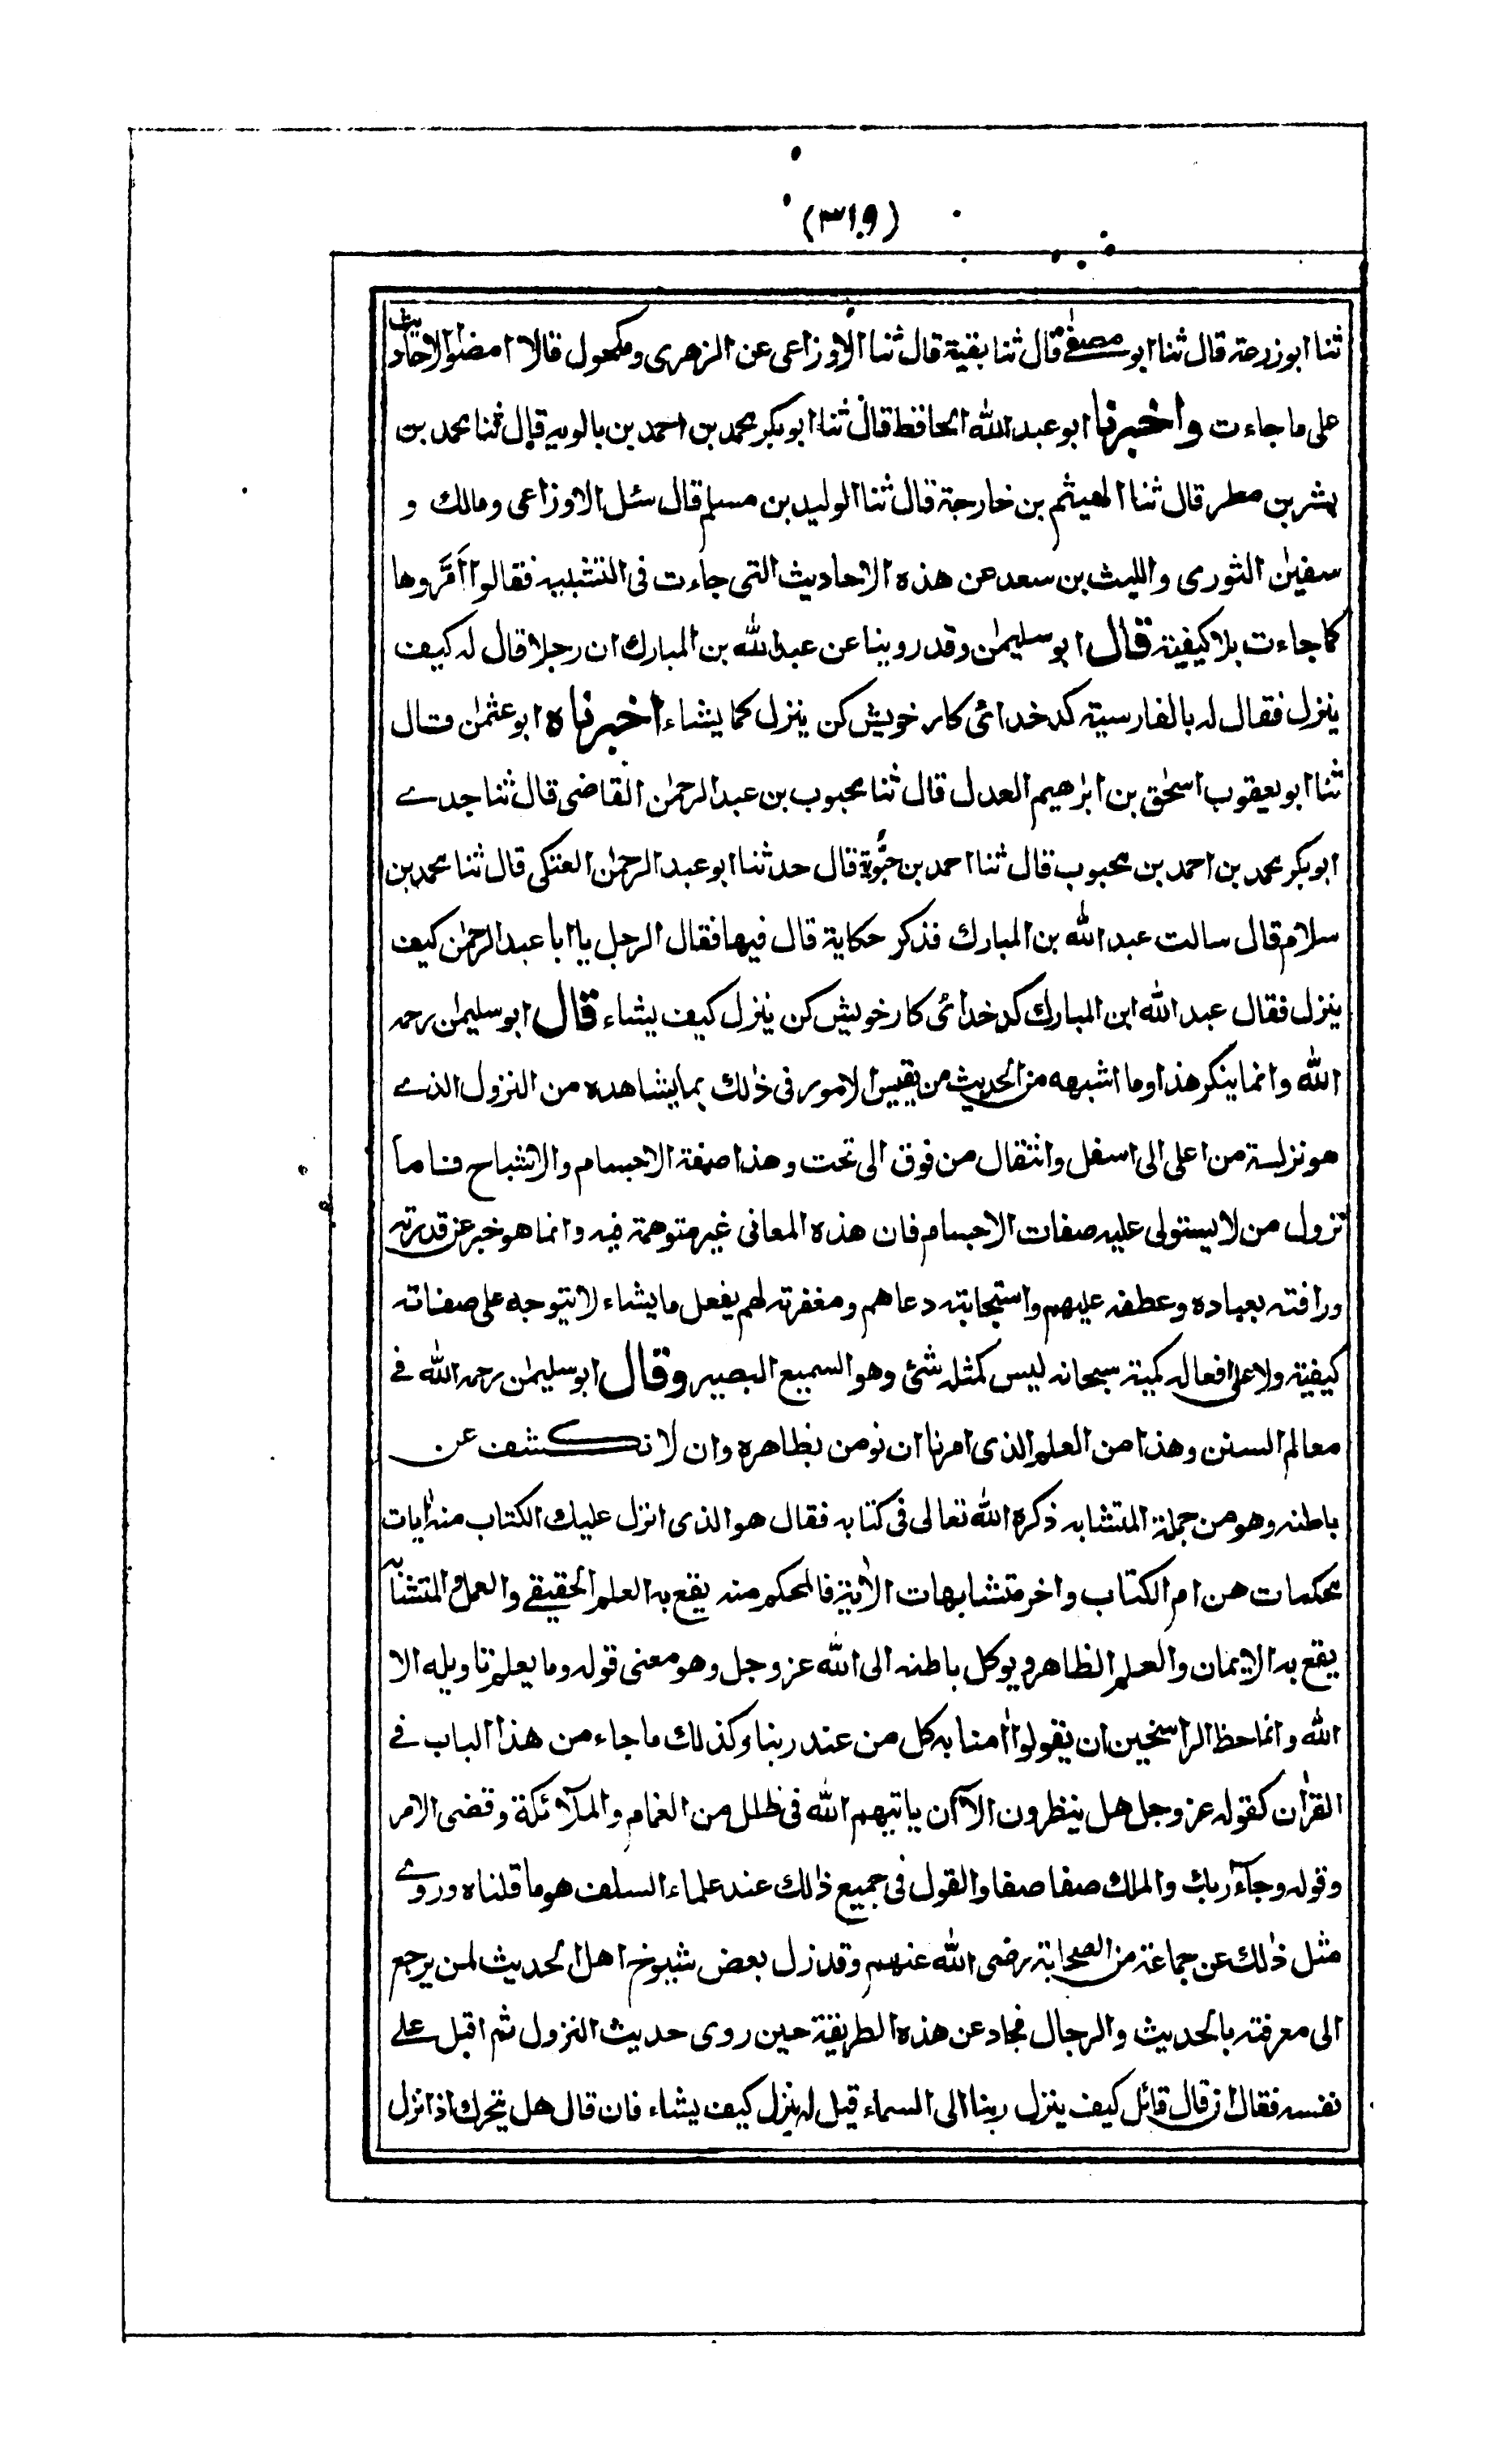 (٣١٩)
ثنا ابو زرعة قال ثنا ابو مصفے قال ثنا بقية قال ثنا الاوزاعى عن الزهرى ومكحول قالا امضوا الاحاديث
على ما جاءت واخبرنا ابو عبد الله الحافظ قال ثنا ابو بكر محمد بن احمد بن بالويه قال ثنا محمد بن
بشر بن مطر قال ثنا الهيثم بن خارجة قال ثنا الوليد بن مسلم قال سئل الاوزاعى ومالك و
سفيٰن الثورى والليث بن سعد عن هذه الاحاديث التى جاءت فى التشبيه فقالوا اَمَرُّوها
كما جاءت بلا كيفية قال ابو سليمٰن وقد روينا عن عبد الله بن المبارك ان رجلا قال له كيف
ينزل فقال له بالفارسية كد خدائى كار خويش كن ينزل كما يشاء اخبرناه ابو عثمٰن قال
ثنا ابو يعقوب اسحٰق بن ابرٰهيم العدل قال ثنا محبوب بن عبد الرحمٰن القاضى قال ثنا جدے
ابو بكر محمد بن احمد بن محبوب قال ثنا احمد بن حبُّوية قال حدثنا ابو عبد الرحمٰن العتكى قال ثنا محمد بن
سلام قال سالت عبد الله بن المبارك فذكر حكاية قال فيها فقال الرجل يا ابا عبد الرحمٰن كيف
ينزل فقال عبد الله ابن المبارك كد خدائى كار خويش كن ينزل كيف يشاء قال ابو سليمٰن رحمه
الله وانما ينكر هذا وما اشبهه من الحديث من يقيس الامور فى ذٰلك بما يشاهده من النزول الذے
هو نزلة من اعلى الى اسفل وانتقال من فوق الى تحت وهذا صفة الاجسام والاشباح فاما
نزول من لا يستولى عليه صفات الاجسام فان هذه المعانى غير متوهمة فيه وانما هو خبر عن قدرته
ورافته بعباده وعطفه عليهم واستجابته دعاهم ومغفرته لهم يفعل ما يشاء لا يتوجه على صفاته
كيفية ولا على افعاله كمية سبحانه ليس كمثله شئ وهو السميع البصير وقال ابو سليمٰن رحمه الله فے
معالم السنن وهذا من العلم الذى امرنا ان نومن بظاهره وان لا نكشف عن
باطنه وهو من جملة المتشابه ذكره الله تعالى فى كتابه فقال هو الذى انزل عليك الكتاب منه اٰيات
محكمات هن ام الكتاب واخر متشابهات الاٰية فالمحكم منه يقع به العلم الحقيقے والعمل والمتشابه
يقع به الايمان والعلم الظاهر ويوكل باطنه الى الله عز وجل وهو معنى قوله وما يعلم تاويله الا
الله وانما حظ الراسخين ان يقولوا اٰمنا به كل من عند ربنا وكذلك ما جاء من هذا الباب فے
القرٰان كقوله عز وجل هل ينظرون الآ ان ياتيهم الله فى ظلل من الغمام والملآئكة وقضى الامر
وقوله وجآء ربك والملك صفا صفا والقول فى جميع ذٰلك عند علماء السلف هو ما قلناه وروے
مثل ذٰلك عن جماعة من الصحابة رضى الله عنهم وقد زل بعض شيوخ اهل الحديث لمن يرجع
الى معرفته بالحديث والرجال فحاد عن هذه الطريقة حين روى حديث النزول ثم اقبل علے
نفسه فقال ان قال قائل كيف ينزل ربنا الى السماء قيل له ينزل كيف يشاء فان قال هل يتحرك اذا نزل